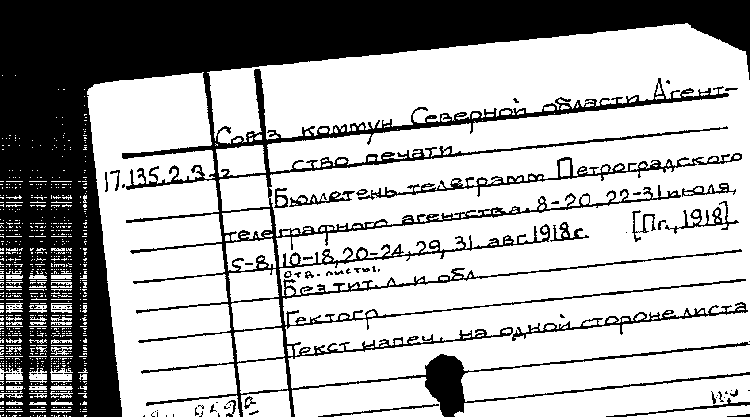 Союз коммун Северной области Агент-
ство печати.
17.135.2.3-2
Бюллетень телеграмм Петроградского
телеграфного агентства. 8-20, 22-31 июля,
5-8, 10-18, 20-24, 29, 31. авг. 1918 г. [Пг., 1918].
отд. листы,
Без тит. л. и обл.
Гектогр.
Текст напеч. на одной стороне листа